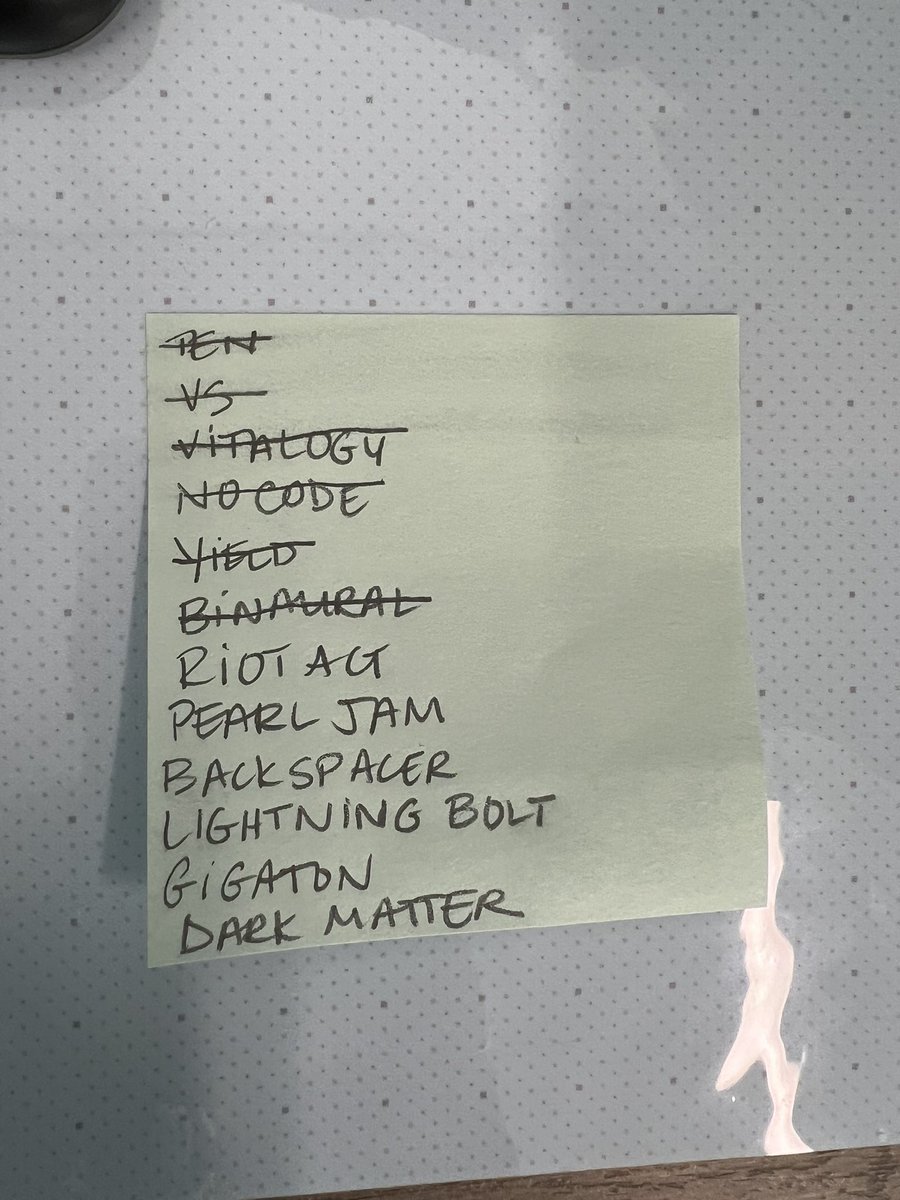 TEN
VS
ViTALOGY
NO CODE
YiELD
BiNAURAL
RiOT ACT
PEARL JAM
BACKSPACER
LIGHTNiNG BOLT
GiGATON
DARK MATTER